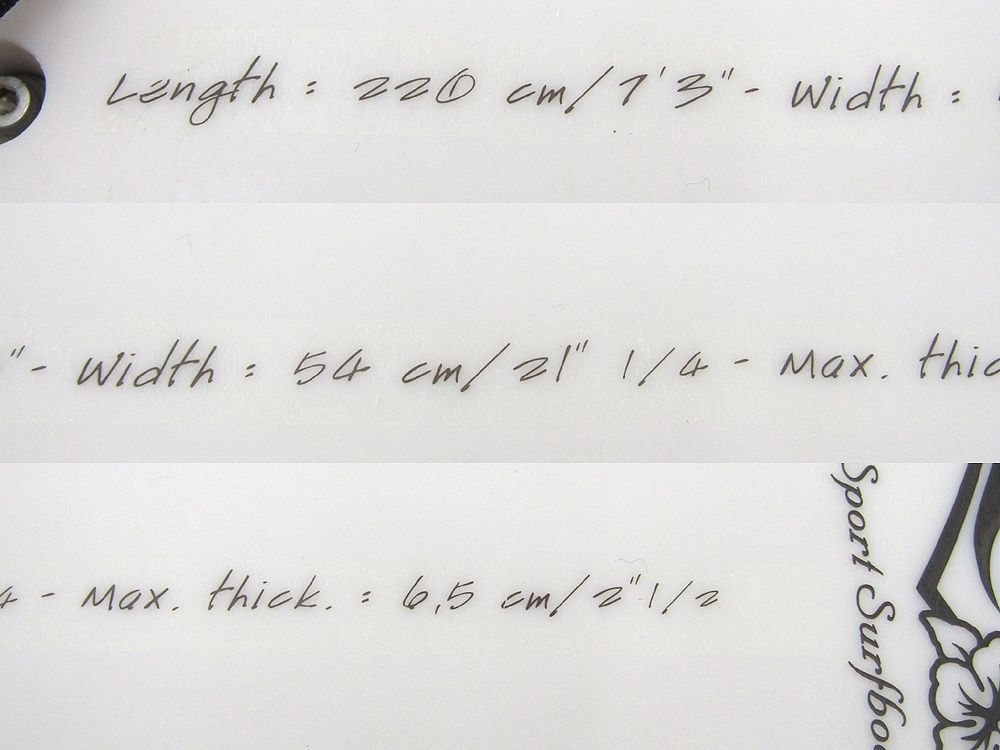 Length : 220 cm/7'3" - Width :
"- Width : 54 cm/21" 1/4 - Max. thic
4 - Max. thick. : 6,5 cm/2"1/2
Sport Surfbo